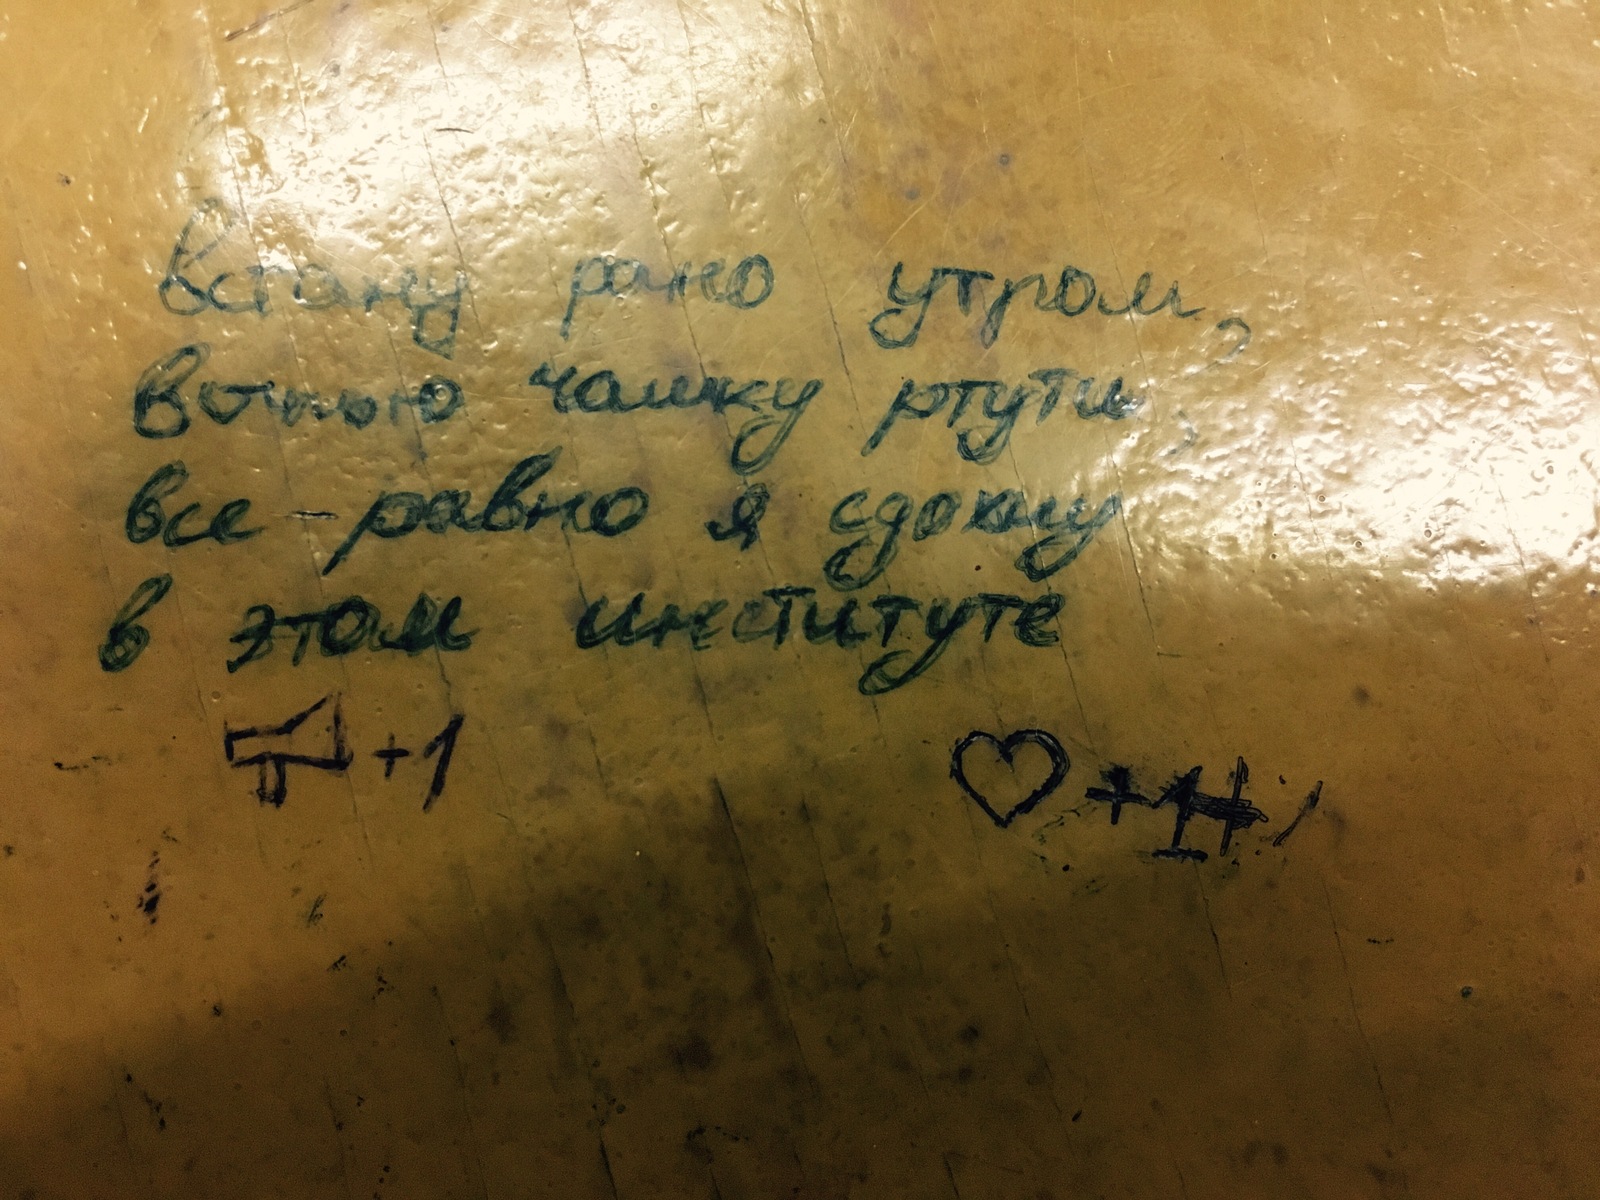 Встану рано утром,
Выпью чашку ртути,
все - равно я сдохну
в этом институте
+1
+1